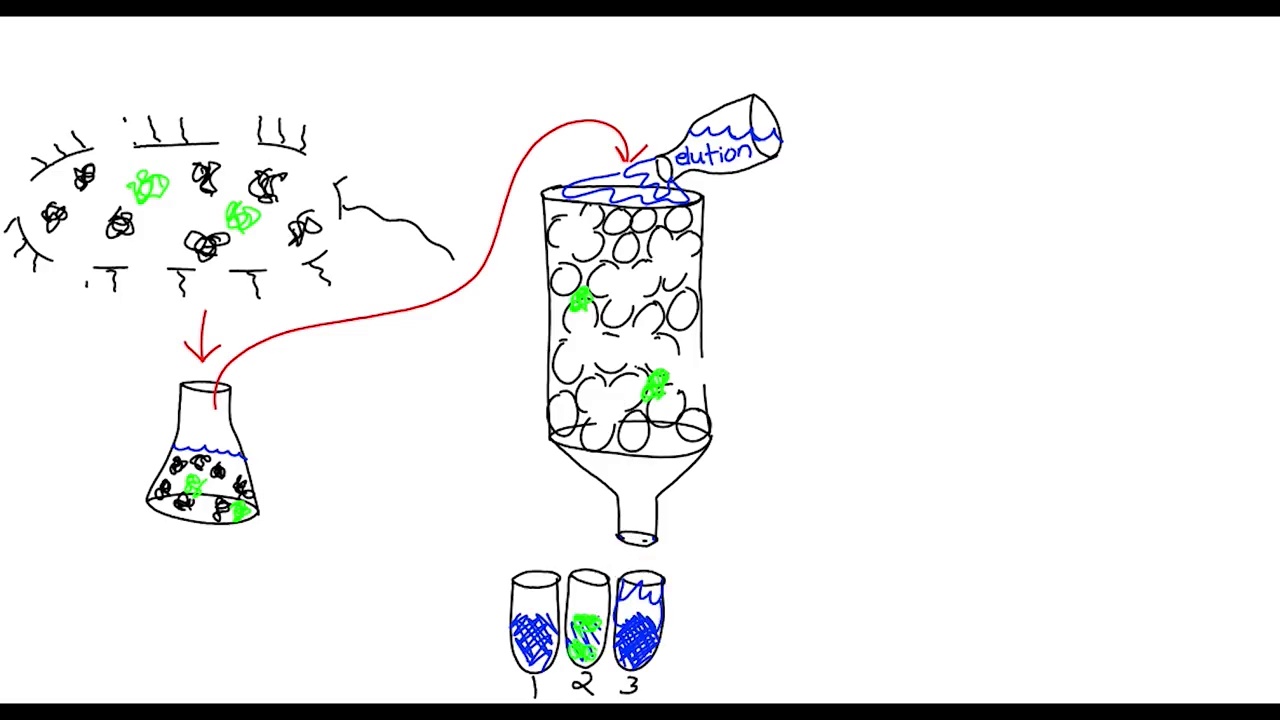 elution
1 2 3